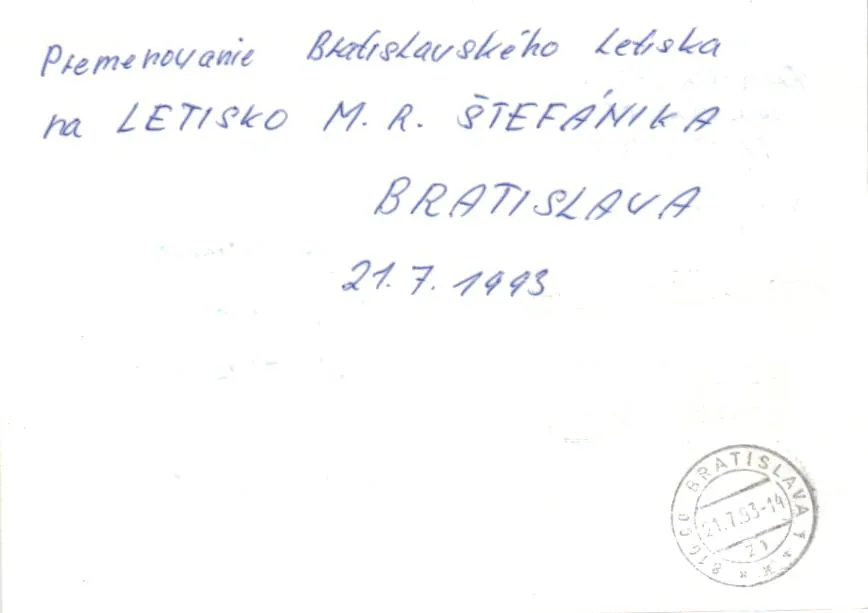 Premenovanie Bratislavského Letiska
na LETISKO M. R. ŠTEFÁNIKA
BRATISLAVA
21. 7. 1993
810 00 BRATISLAVA 1
21.7.93-14
z1